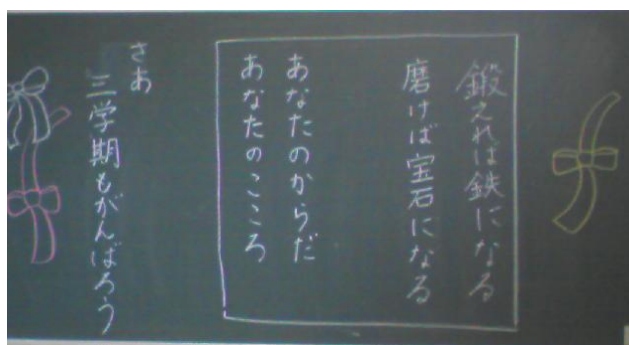 鍛えれば鉄になる
磨けば宝石になる
あなたのからだ
あなたのこころ
さあ
三学期もがんばろう